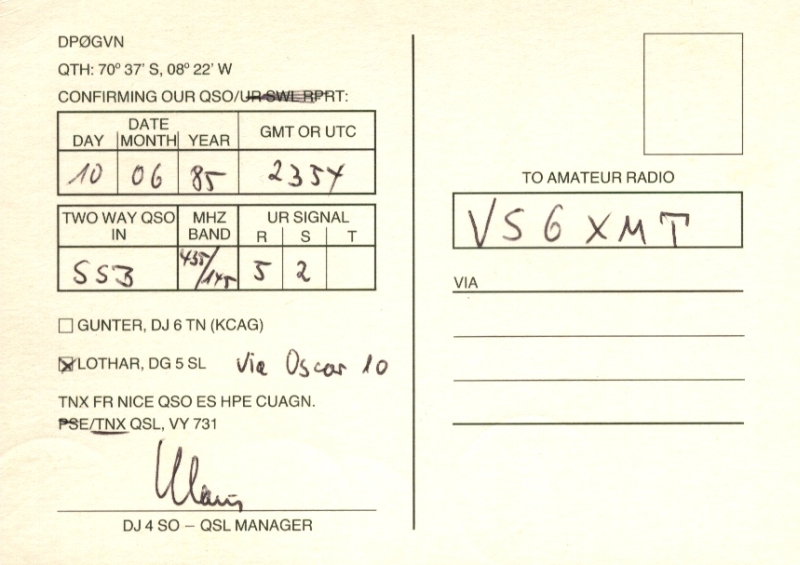 DPØGVN
QTH: 70° 37' S, 08° 22' W
CONFIRMING OUR QSO/UR SWL RPRT:
DATE
DAY MONTH YEAR GMT OR UTC
10 06 85 2354
TWO WAY QSO IN MHZ BAND UR SIGNAL
R S T
SSB 435/145 5 2
GUNTER, DJ 6 TN (KCAG)
LOTHAR, DG 5 SL via Oscar 10
TNX FR NICE QSO ES HPE CUAGN.
PSE/TNX QSL, VY 731
Klaus
DJ 4 SO – QSL MANAGER
TO AMATEUR RADIO
VS6XMT
VIA